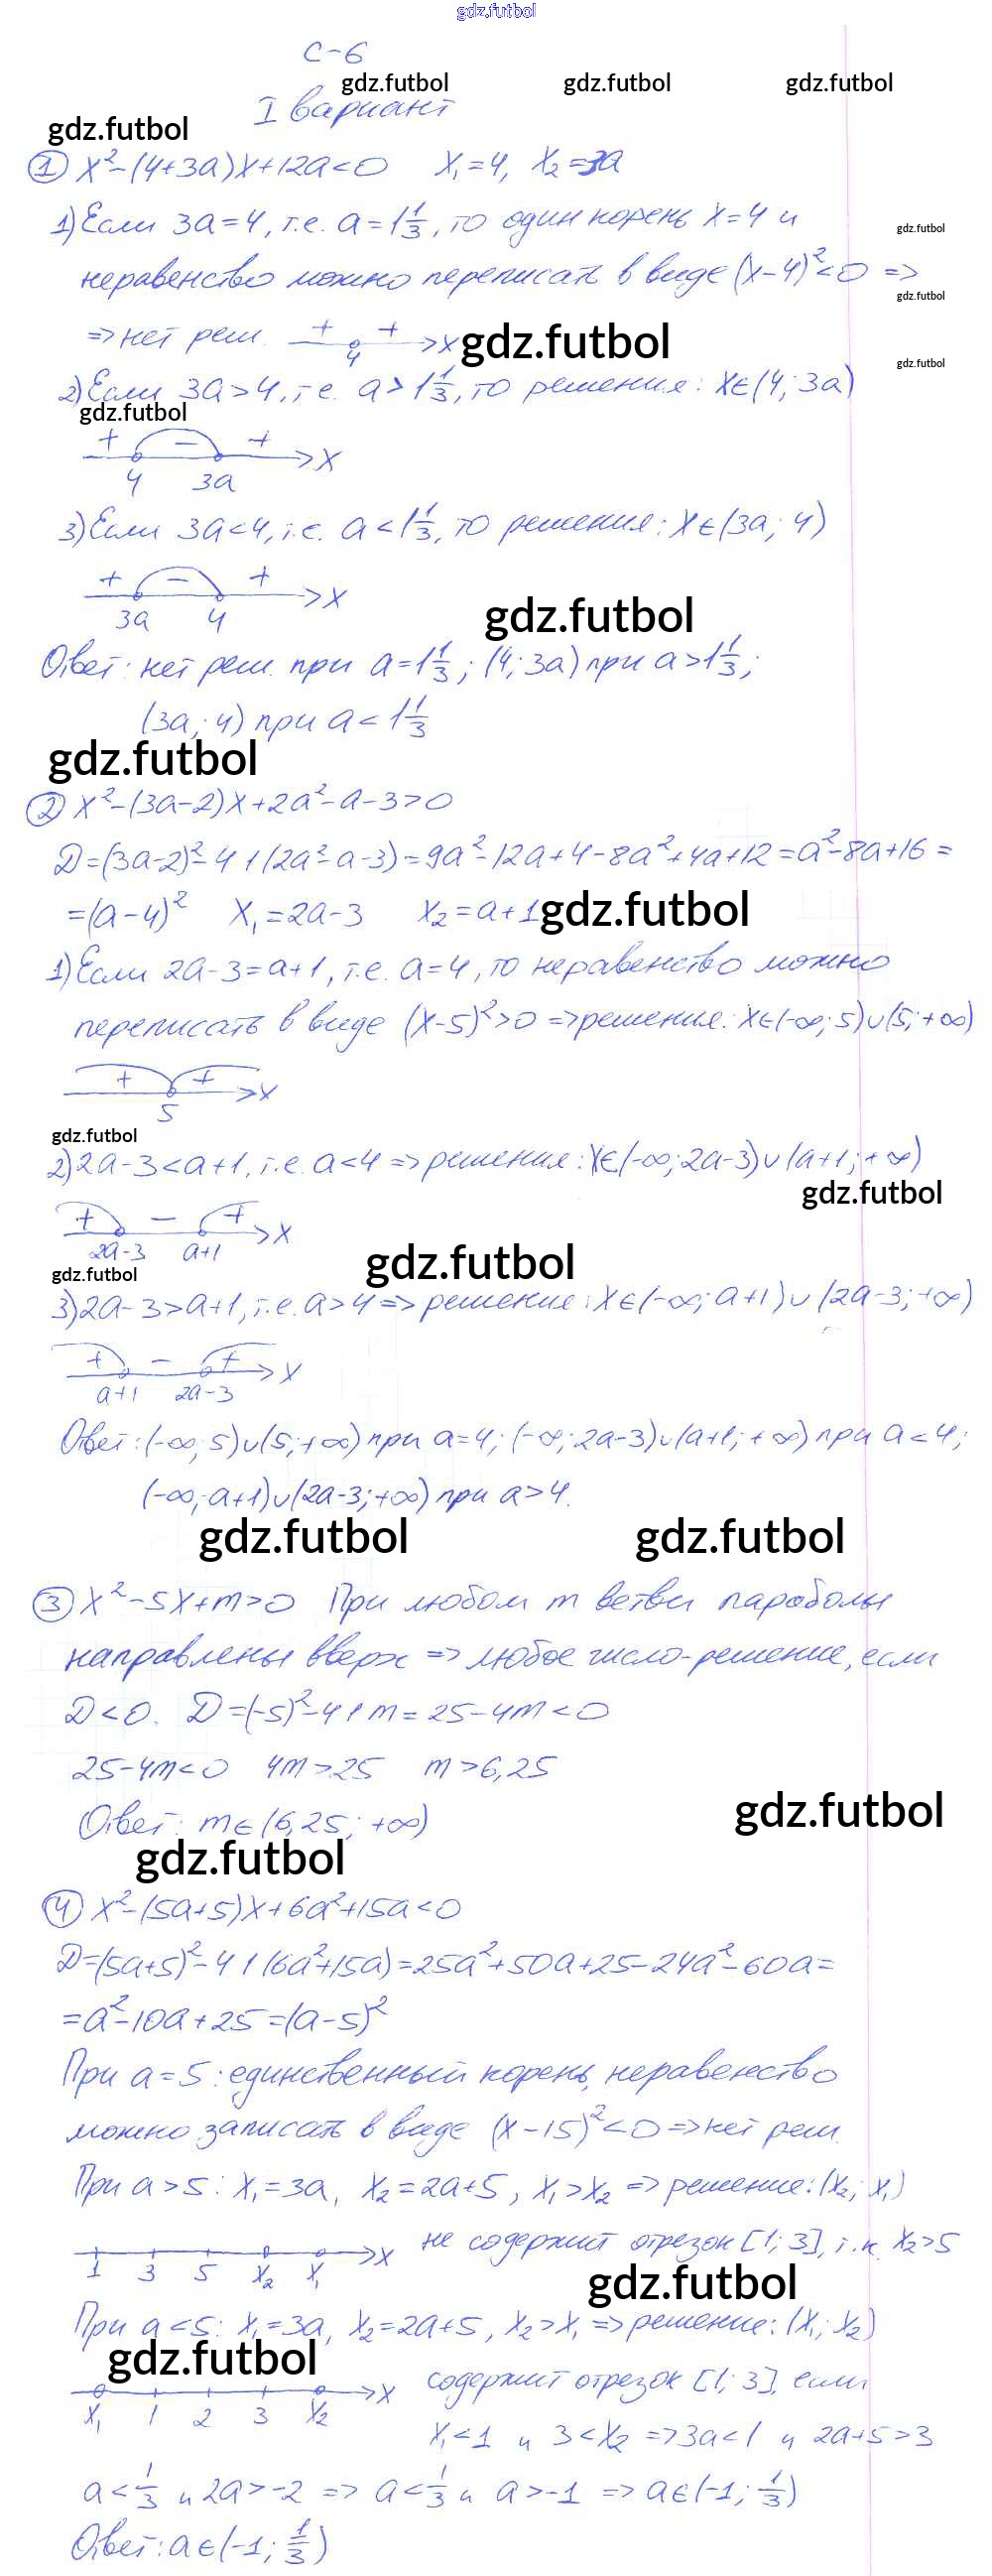 gdz.futbol
С-6
gdz.futbol gdz.futbol gdz.futbol
I вариант
gdz.futbol
① x²-(4+3a)x+12a<0 x₁=4, x₂=3a
1) Если 3a=4, т.е. a=1 1/3, то один корень x=4 и
gdz.futbol
неравенство можно переписать в виде (x-4)²<0 =>
gdz.futbol
=> нет реш. + + 4 x gdz.futbol
gdz.futbol
2) Если 3a>4, т.е. a>1 1/3, то решения: x∈(4; 3a)
gdz.futbol
+ - + x
4 3a
3) Если 3a<4, т.е. a<1 1/3, то решения: x∈(3a; 4)
+ - + x
3a 4
gdz.futbol
Ответ: нет реш. при a=1 1/3; (4; 3a) при a>1 1/3;
(3a; 4) при a<1 1/3
gdz.futbol
② x²-(3a-2)x+2a²-a-3>0
D=(3a-2)²-4·1·(2a²-a-3)=9a²-12a+4-8a²+4a+12=a²-8a+16=
=(a-4)² x₁=2a-3 x₂=a+1 gdz.futbol
1) Если 2a-3=a+1, т.е. a=4, то неравенство можно
переписать в виде (x-5)²>0 => решения: x∈(-∞; 5)∪(5; +∞)
+ + x
5
gdz.futbol
2) 2a-3<a+1, т.е. a<4 => решения: x∈(-∞; 2a-3)∪(a+1; +∞)
gdz.futbol
+ - + x
2a-3 a+1
gdz.futbol
gdz.futbol
3) 2a-3>a+1, т.е. a>4 => решения: x∈(-∞; a+1)∪(2a-3; +∞)
+ - + x
a+1 2a-3
Ответ: (-∞; 5)∪(5; +∞) при a=4; (-∞; 2a-3)∪(a+1; +∞) при a<4;
(-∞; a+1)∪(2a-3; +∞) при a>4.
gdz.futbol gdz.futbol
③ x²-5x+m>0 При любом m ветви параболы
направлены вверх => любое число-решение, если
D<0. D=(-5)²-4·1·m=25-4m<0
25-4m<0 4m>25 m>6,25
gdz.futbol
Ответ: m∈(6,25; +∞)
gdz.futbol
④ x²-(5a+5)x+6a²+15a<0
D=(5a+5)²-4·1·(6a²+15a)=25a²+50a+25-24a²-60a=
=a²-10a+25=(a-5)²
При a=5: единственный корень, неравенство
можно записать в виде (x-15)²<0 => нет реш.
При a>5: x₁=3a, x₂=2a+5, x₁>x₂ => решение: (x₂; x₁)
1 3 5 x₂ x₁ x не содержит отрезок [1; 3], т.к. x₂>5
gdz.futbol
При a<5: x₁=3a, x₂=2a+5, x₂>x₁ => решение: (x₁; x₂)
gdz.futbol
x₁ 1 2 3 x₂ x содержит отрезок [1; 3], если
x₁<1 и 3<x₂ => 3a<1 и 2a+5>3
a<1/3 и 2a>-2 => a<1/3 и a>-1 => a∈(-1; 1/3)
Ответ: a∈(-1; 1/3)